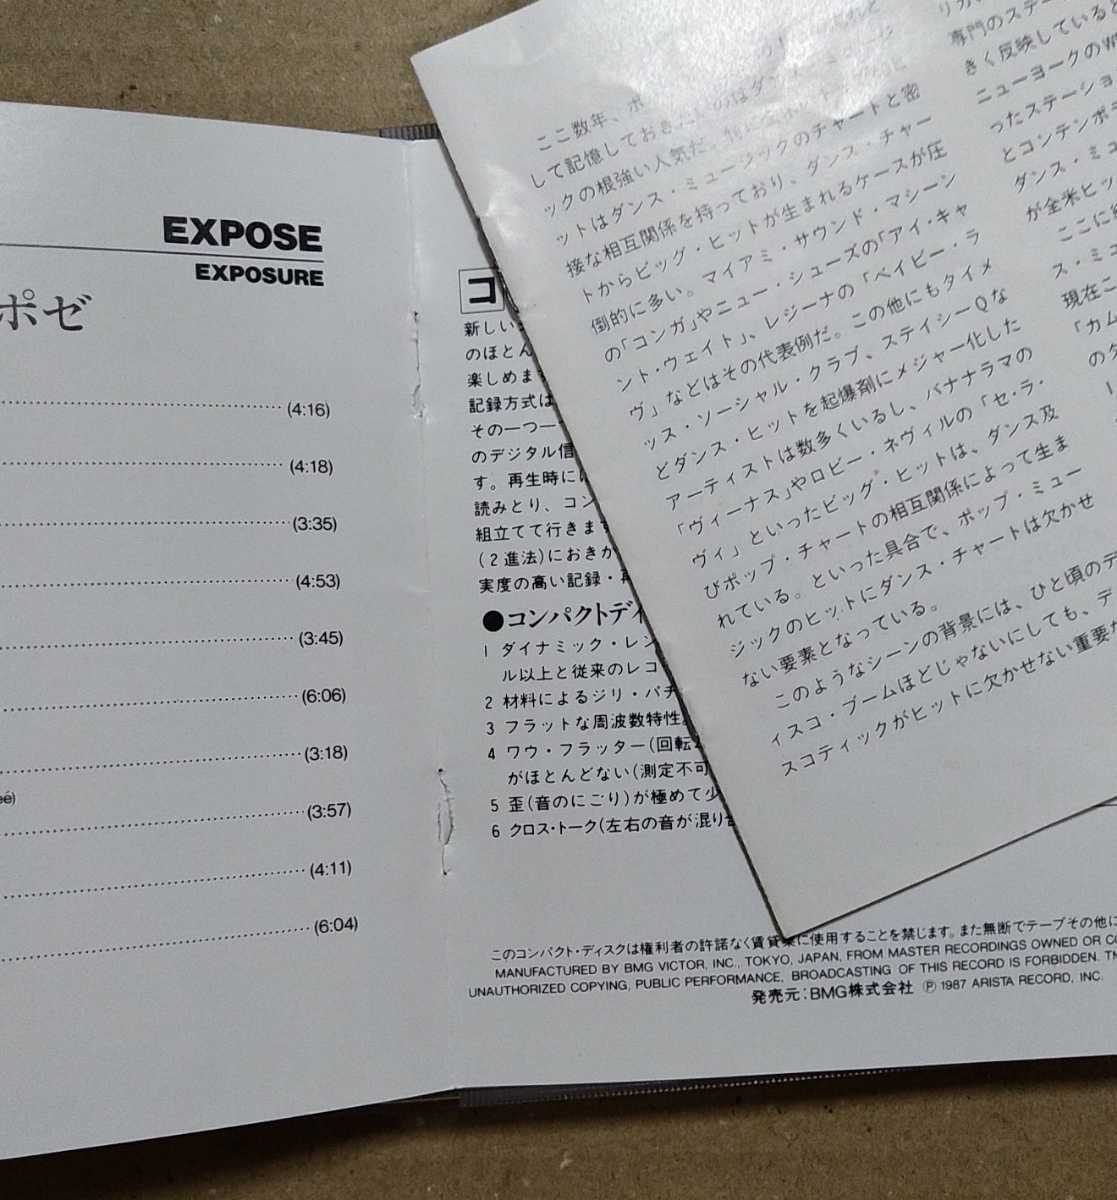 EXPOSE
EXPOSURE
ポゼ
(4:16)
(4:18)
(3:35)
(4:53)
(3:45)
(6:06)
(3:18)
(3:57)
(4:11)
(6:04)
コ
新しい
のほとん
楽しめま
記録方式は
その一つ一
のデジタル信
す。再生時に
読みとり、コン
組立てて行きます
(2進法)におきか
実度の高い記録・再
●コンパクトディ
1 ダイナミック・レン
ル以上と従来のレコ
2 材料によるジリ・パチ
3 フラットな周波数特性
4 ワウ・フラッター(回転
がほとんどない(測定不可
5 歪(音のにごり)が極めて少
6 クロス・トーク(左右の音が混り
このコンパクト・ディスクは権利者の許諾なく賃貸業に使用することを禁じます。また無断でテープその他に
MANUFACTURED BY BMG VICTOR, INC., TOKYO, JAPAN, FROM MASTER RECORDINGS OWNED OR CO
UNAUTHORIZED COPYING, PUBLIC PERFORMANCE, BROADCASTING OF THIS RECORD IS FORBIDDEN. TM
発売元:BMG株式会社 Ⓟ 1987 ARISTA RECORD, INC.
ここ数年、ポ
して記憶しておき のはダン
ックの根強い人気だ。
ットはダンス・ミュージックのチャートと密
接な相互関係を持っており、ダンス・チャー
トからビッグ・ヒットが生まれるケースが圧
倒的に多い。マイアミ・サウンド・マシーン
の「コンガ」やニュー・シューズの「アイ・キャ
ント・ウェイト」、レジーナの「ベイビー・ラ
ヴ」などはその代表例だ。この他にもタイメ
ックス・ソーシャル・クラブ、ステイシーQな
どダンス・ヒットを起爆剤にメジャー化した
アーティストは数多くいるし、バナナラマの
「ヴィーナス」やロビー・ネヴィルの「セ・ラ・
ヴィ」といったビッグ・ヒットは、ダンス及
びポップ・チャートの相互関係によって生ま
れている。といった具合で、ポップ・ミュー
ジックのヒットにダンス・チャートは欠かせ
ない要素となっている。
このようなシーンの背景には、ひと頃のデ
ィスコ・ブームほどじゃないにしても、デ
スコティックがヒットに欠かせない重要な
専門のステー
きく反映していると
ニューヨークのW
ったステーショ
とコンテンポ
ダンス・ミュ
が全米ヒッ
ここに
ス・ミュ
現在こ
「カム
のダ